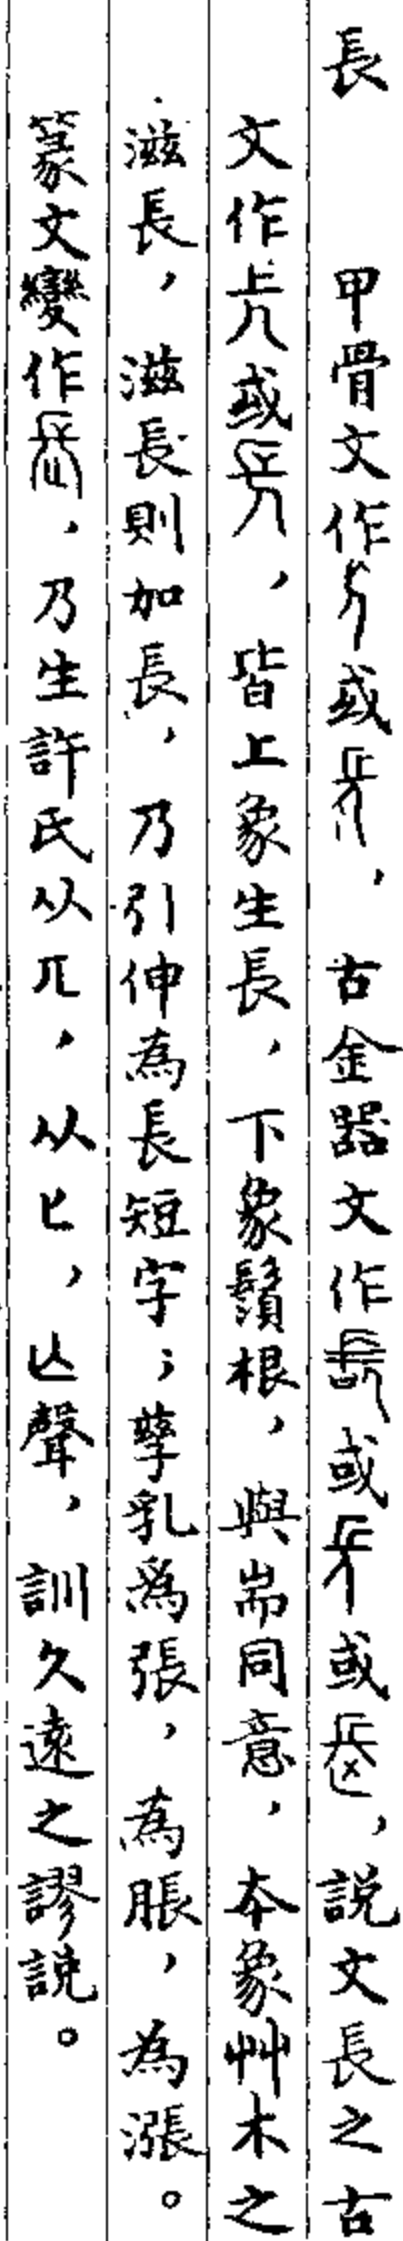 長 甲骨文作或，古金器文作或或，説文長之古
文作或，皆上象生長，下象鬚根，與耑同意，本象艸木之
滋長，滋長則加長，乃引伸為長短字；孳乳為張，為脹，為漲。
篆文變作，乃生許氏从兀，从匕，亾聲，訓久遠之謬説。